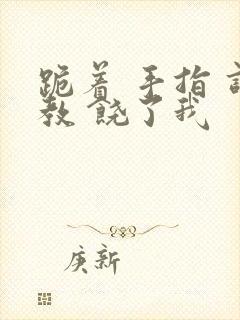 跪着 手指 
教 饶了我
庚新